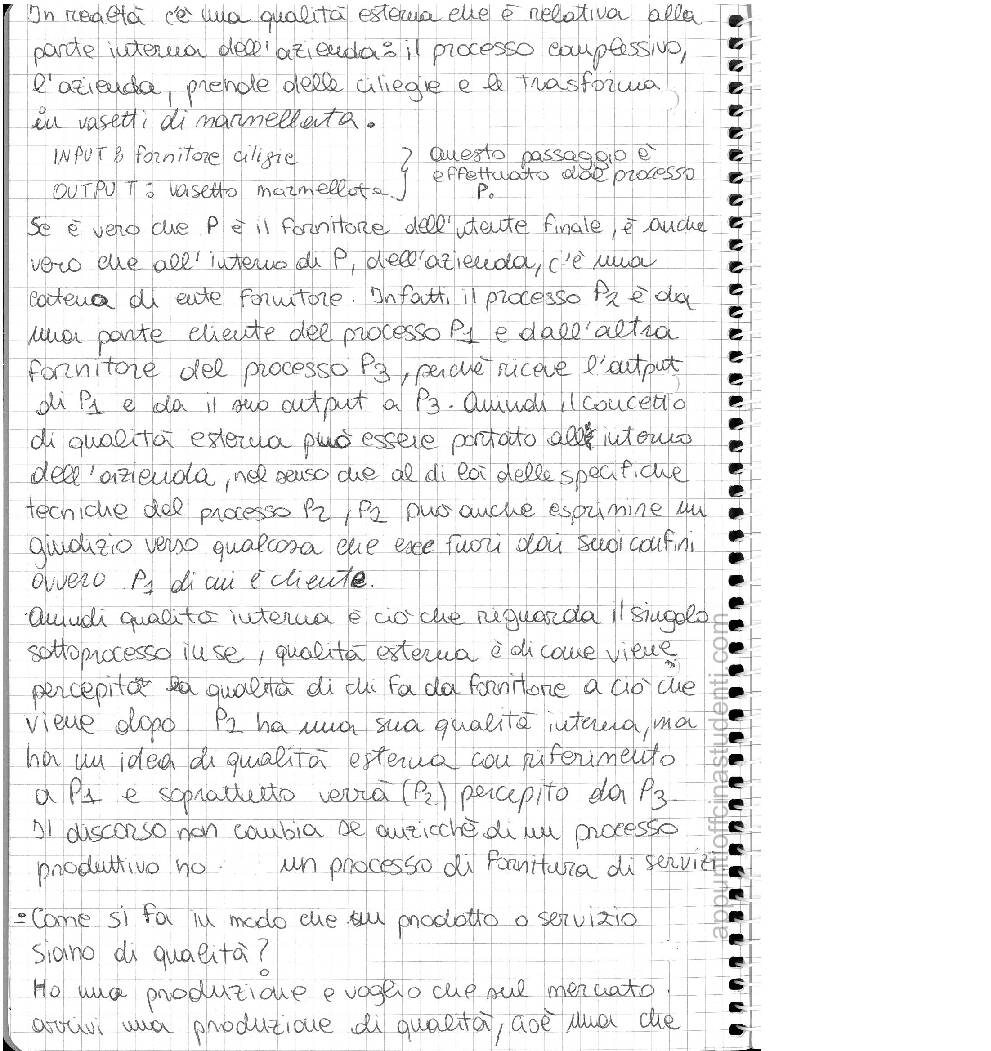 In realtà c'è una qualità esterna che è relativa alla
parte interna dell'azienda: il processo complessivo,
l'azienda, prende delle ciliegie e le trasforma
in vasetti di marmellata.
INPUT: fornitore ciligie } Questo passaggio è
effettuato dal processo
OUTPUT: vasetto marmellata } P.
Se è vero che P è il fornitore dell'utente finale, è anche
vero che all'interno di P, dell'azienda, c'è una
catena di ente fornitore. Infatti il processo P2 è da
una parte cliente del processo P1 e dall'altra
fornitore del processo P3, perchè riceve l'output
di P1 e da il suo output a P3. Quindi il concetto
di qualità esterna può essere portato all' interno
dell'azienda, nel senso che al di là delle specifiche
tecniche del processo P2, P2 può anche esprimere un
giudizio verso qualcosa che esce fuori dai suoi confini
ovvero P1 di cui è cliente.
Quindi qualità interna è ciò che riguarda il singolo
sottoprocesso in se, qualità esterna è di come viene
percepita la qualità di chi fa da fornitore a ciò che
viene dopo P2 ha una sua qualità interna, ma
ha un idea di qualità esterna con riferimento
a P1 e soprattutto verrà (P2) percepito da P3.
Il discorso non cambia se anzicchè di un processo
produttivo ho un processo di fornitura di servizi
- Come si fa in modo che un prodotto o servizio
siano di qualità?
Ho una produzione e voglio che sul mercato
arrivi una produzione di qualità, cioè una che
appuntiofficinastudenti.com